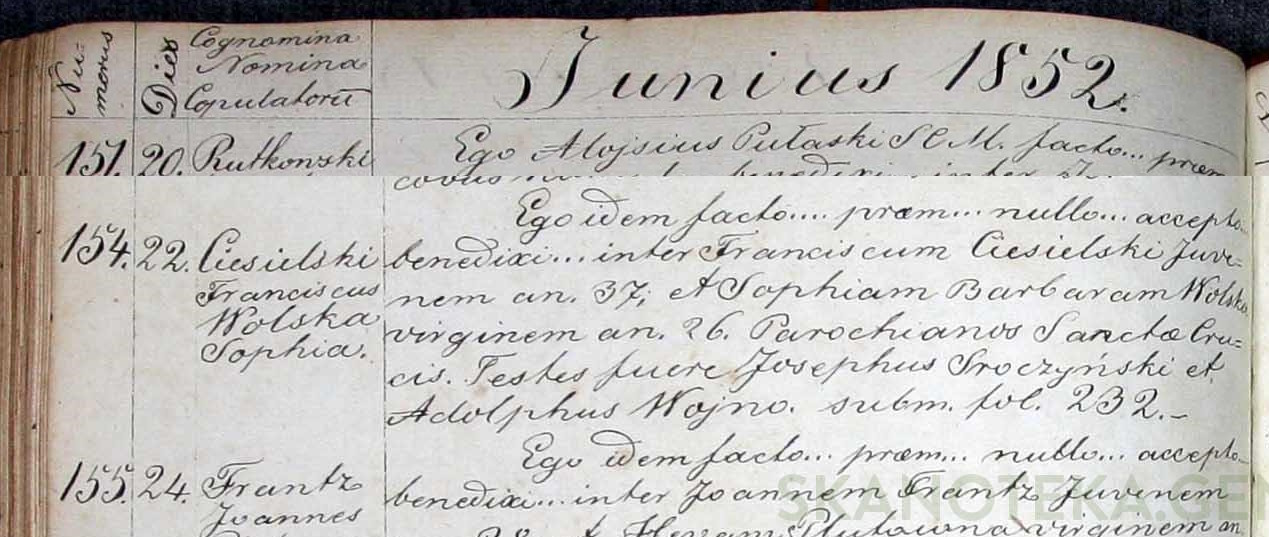 Nu=
merus
Dies
Cognomina
Nomina
Copulatorū
Junius 1852.
151. 20. Rutkowski
Ego Alojsius Pułaski S C M. facto... præm
benedixi inter
Ego idem facto.... præm... nullo... accepto...
154. 22. Ciesielski
Franciscus
Wolska
Sophia.
benedixi... inter Franciscum Ciesielski Juve=
nem an. 37; et Sophiam Barbaram Wolska
virginem an. 26. Parochianos Sanctæ Cru=
cis. Testes fuere Josephus Sroczyński et
Adolphus Wojno. subm. fol. 232.-
Ego idem facto... præm... nullo... accepto...
155. 24. Frantz
Joannes
benedixi... inter Joannem Frantz Juvenem
28 et virginem an.
SKANOTEKA.GEN